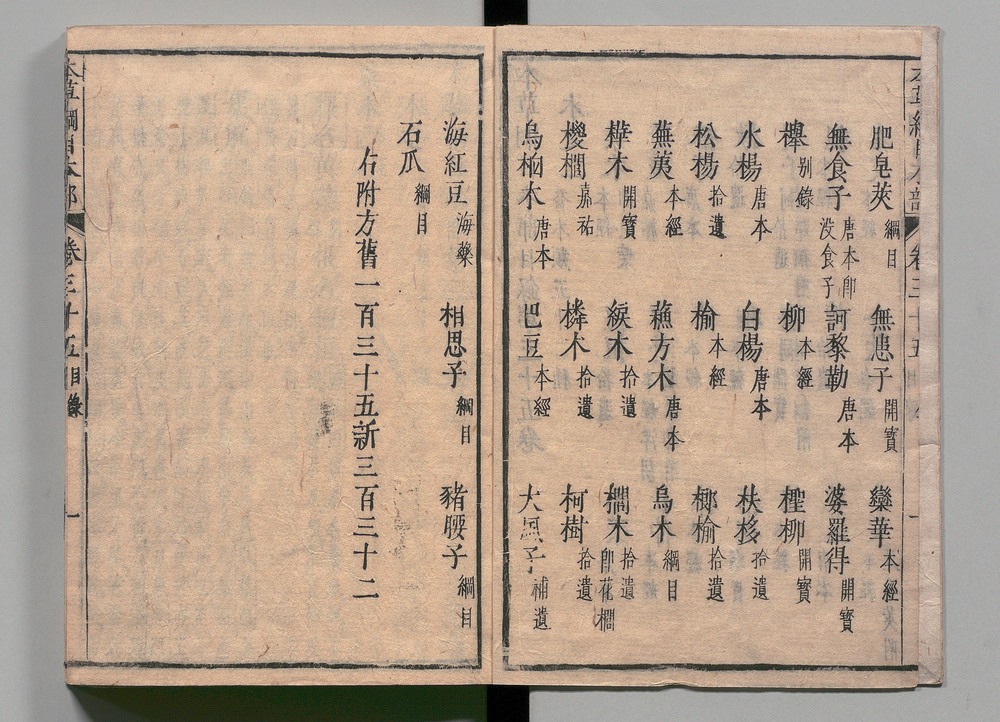 肥皂莢 綱目 無患子 開寶 欒華 本經
無食子 唐本卽没食子 訶黎勒 唐本 婆羅得 開寶
櫸 别錄 柳 本經 檉柳 開寶
水楊 唐本 白楊 唐本 扶栘 拾遺
松楊 拾遺 榆 本經 榔榆 拾遺
蕪荑 本經 蘓方木 唐本 烏木 綱目
樺木 開寶 緱木 拾遺 櫚木 拾遺卽花櫚
㯶櫚 嘉祐 橉木 拾遺 柯樹 拾遺
烏桕木 唐本 巴豆 本經 大風子 補遺
海紅豆 海藥 相思子 綱目 豬腰子 綱目
石瓜 綱目
右附方舊一百三十五新三百三十二
本草綱目木部 卷三十五目錄 一